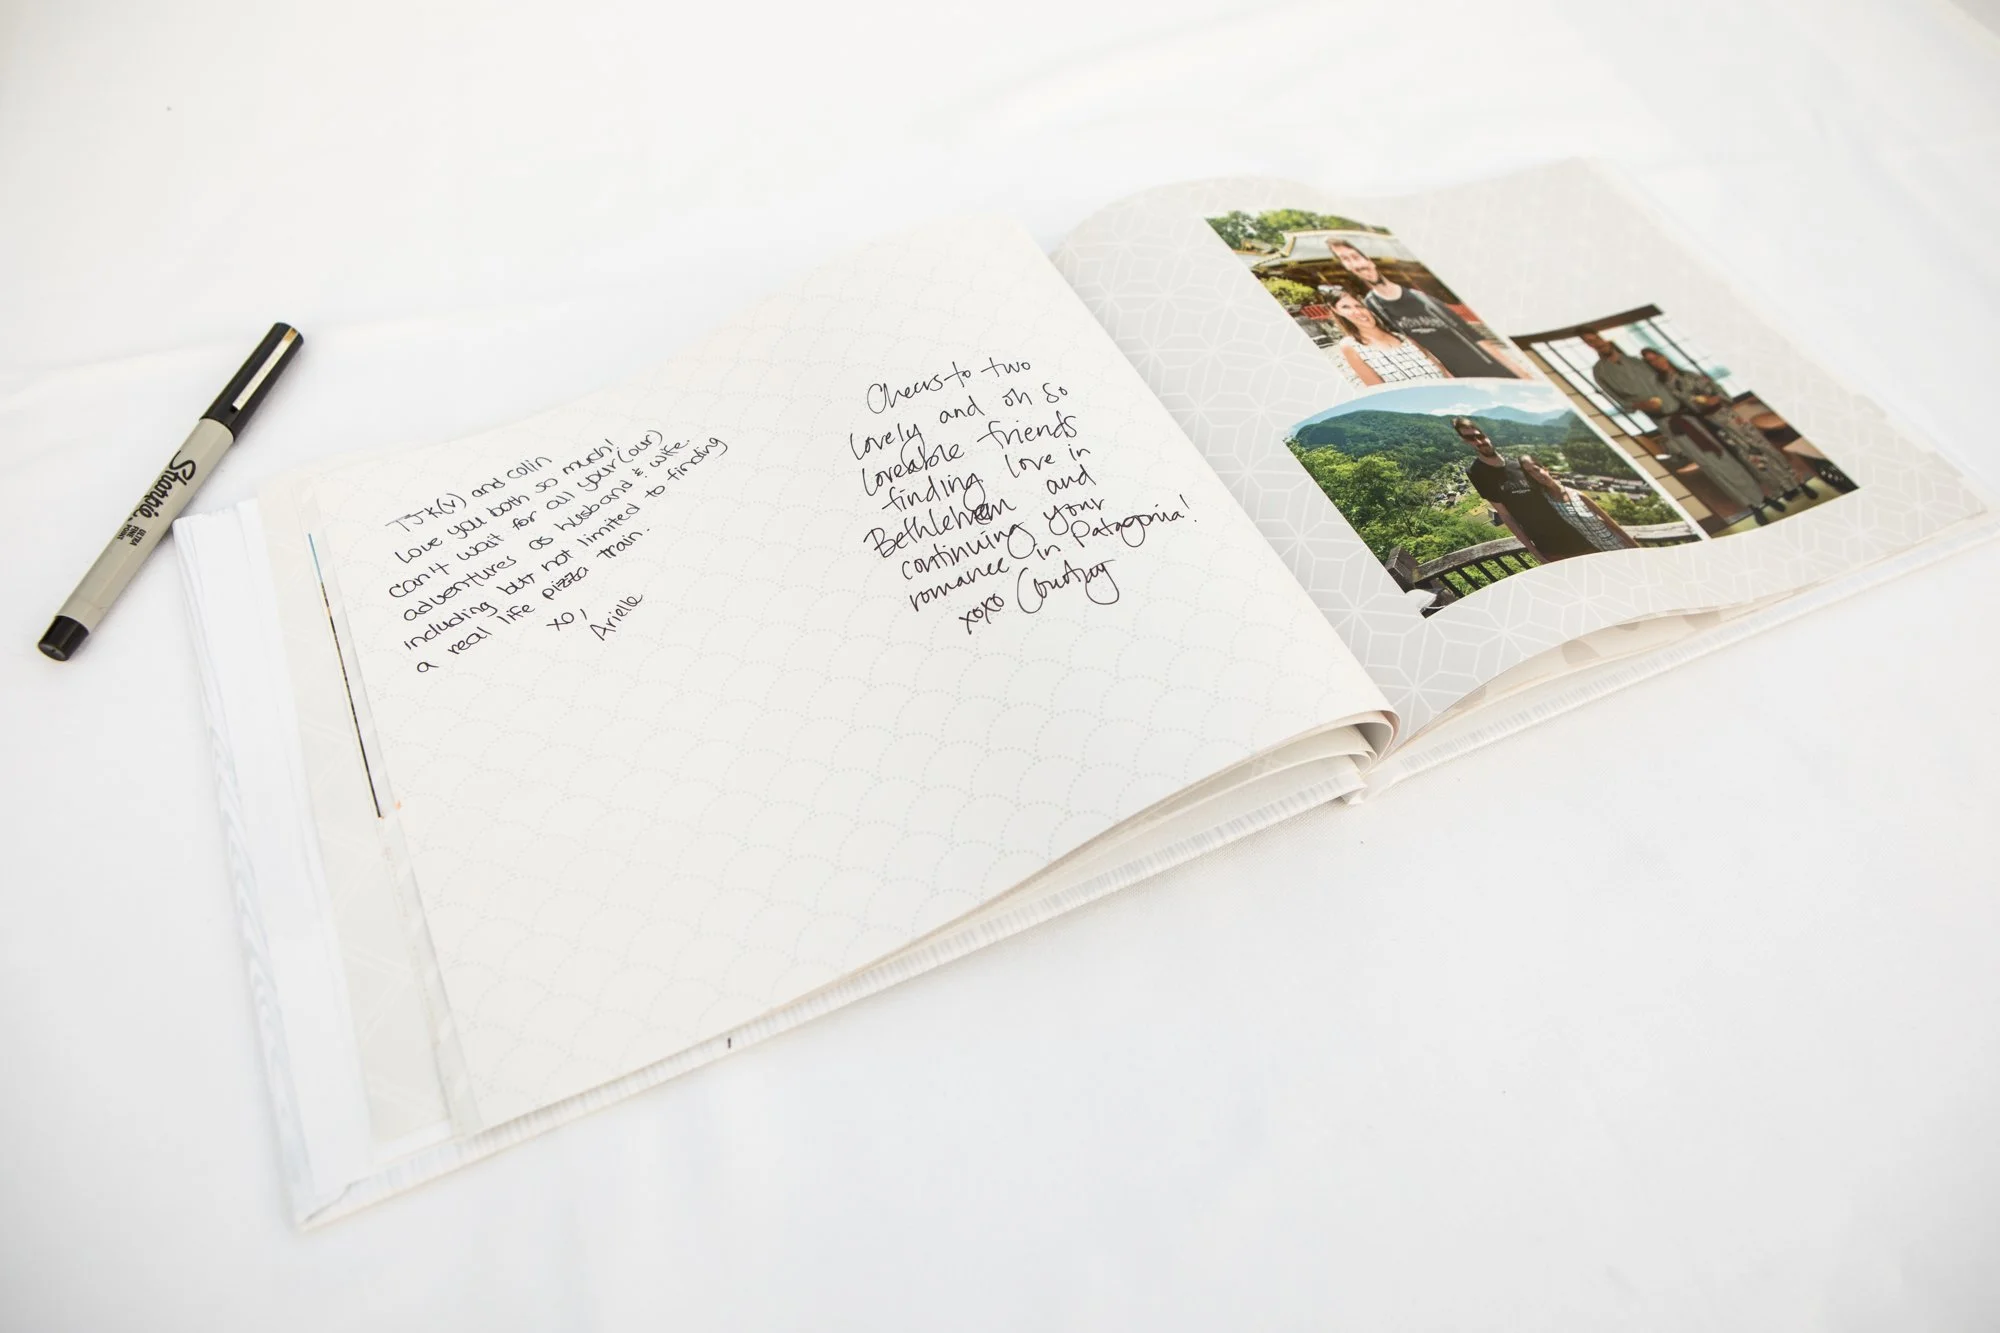 Sharpie
ULTRA
FINE
POINT
TJK(V) and Colin
Love you both so much!
can't wait for all your (our)
adventures as husband & wife.
including but not limited to finding
a real life pizza train.
xo,
Arielle
Cheers to two
lovely and oh so
loveable friends
finding love in
Bethlehem and
continuing your
romance in Patagonia!
xoxo Courtney